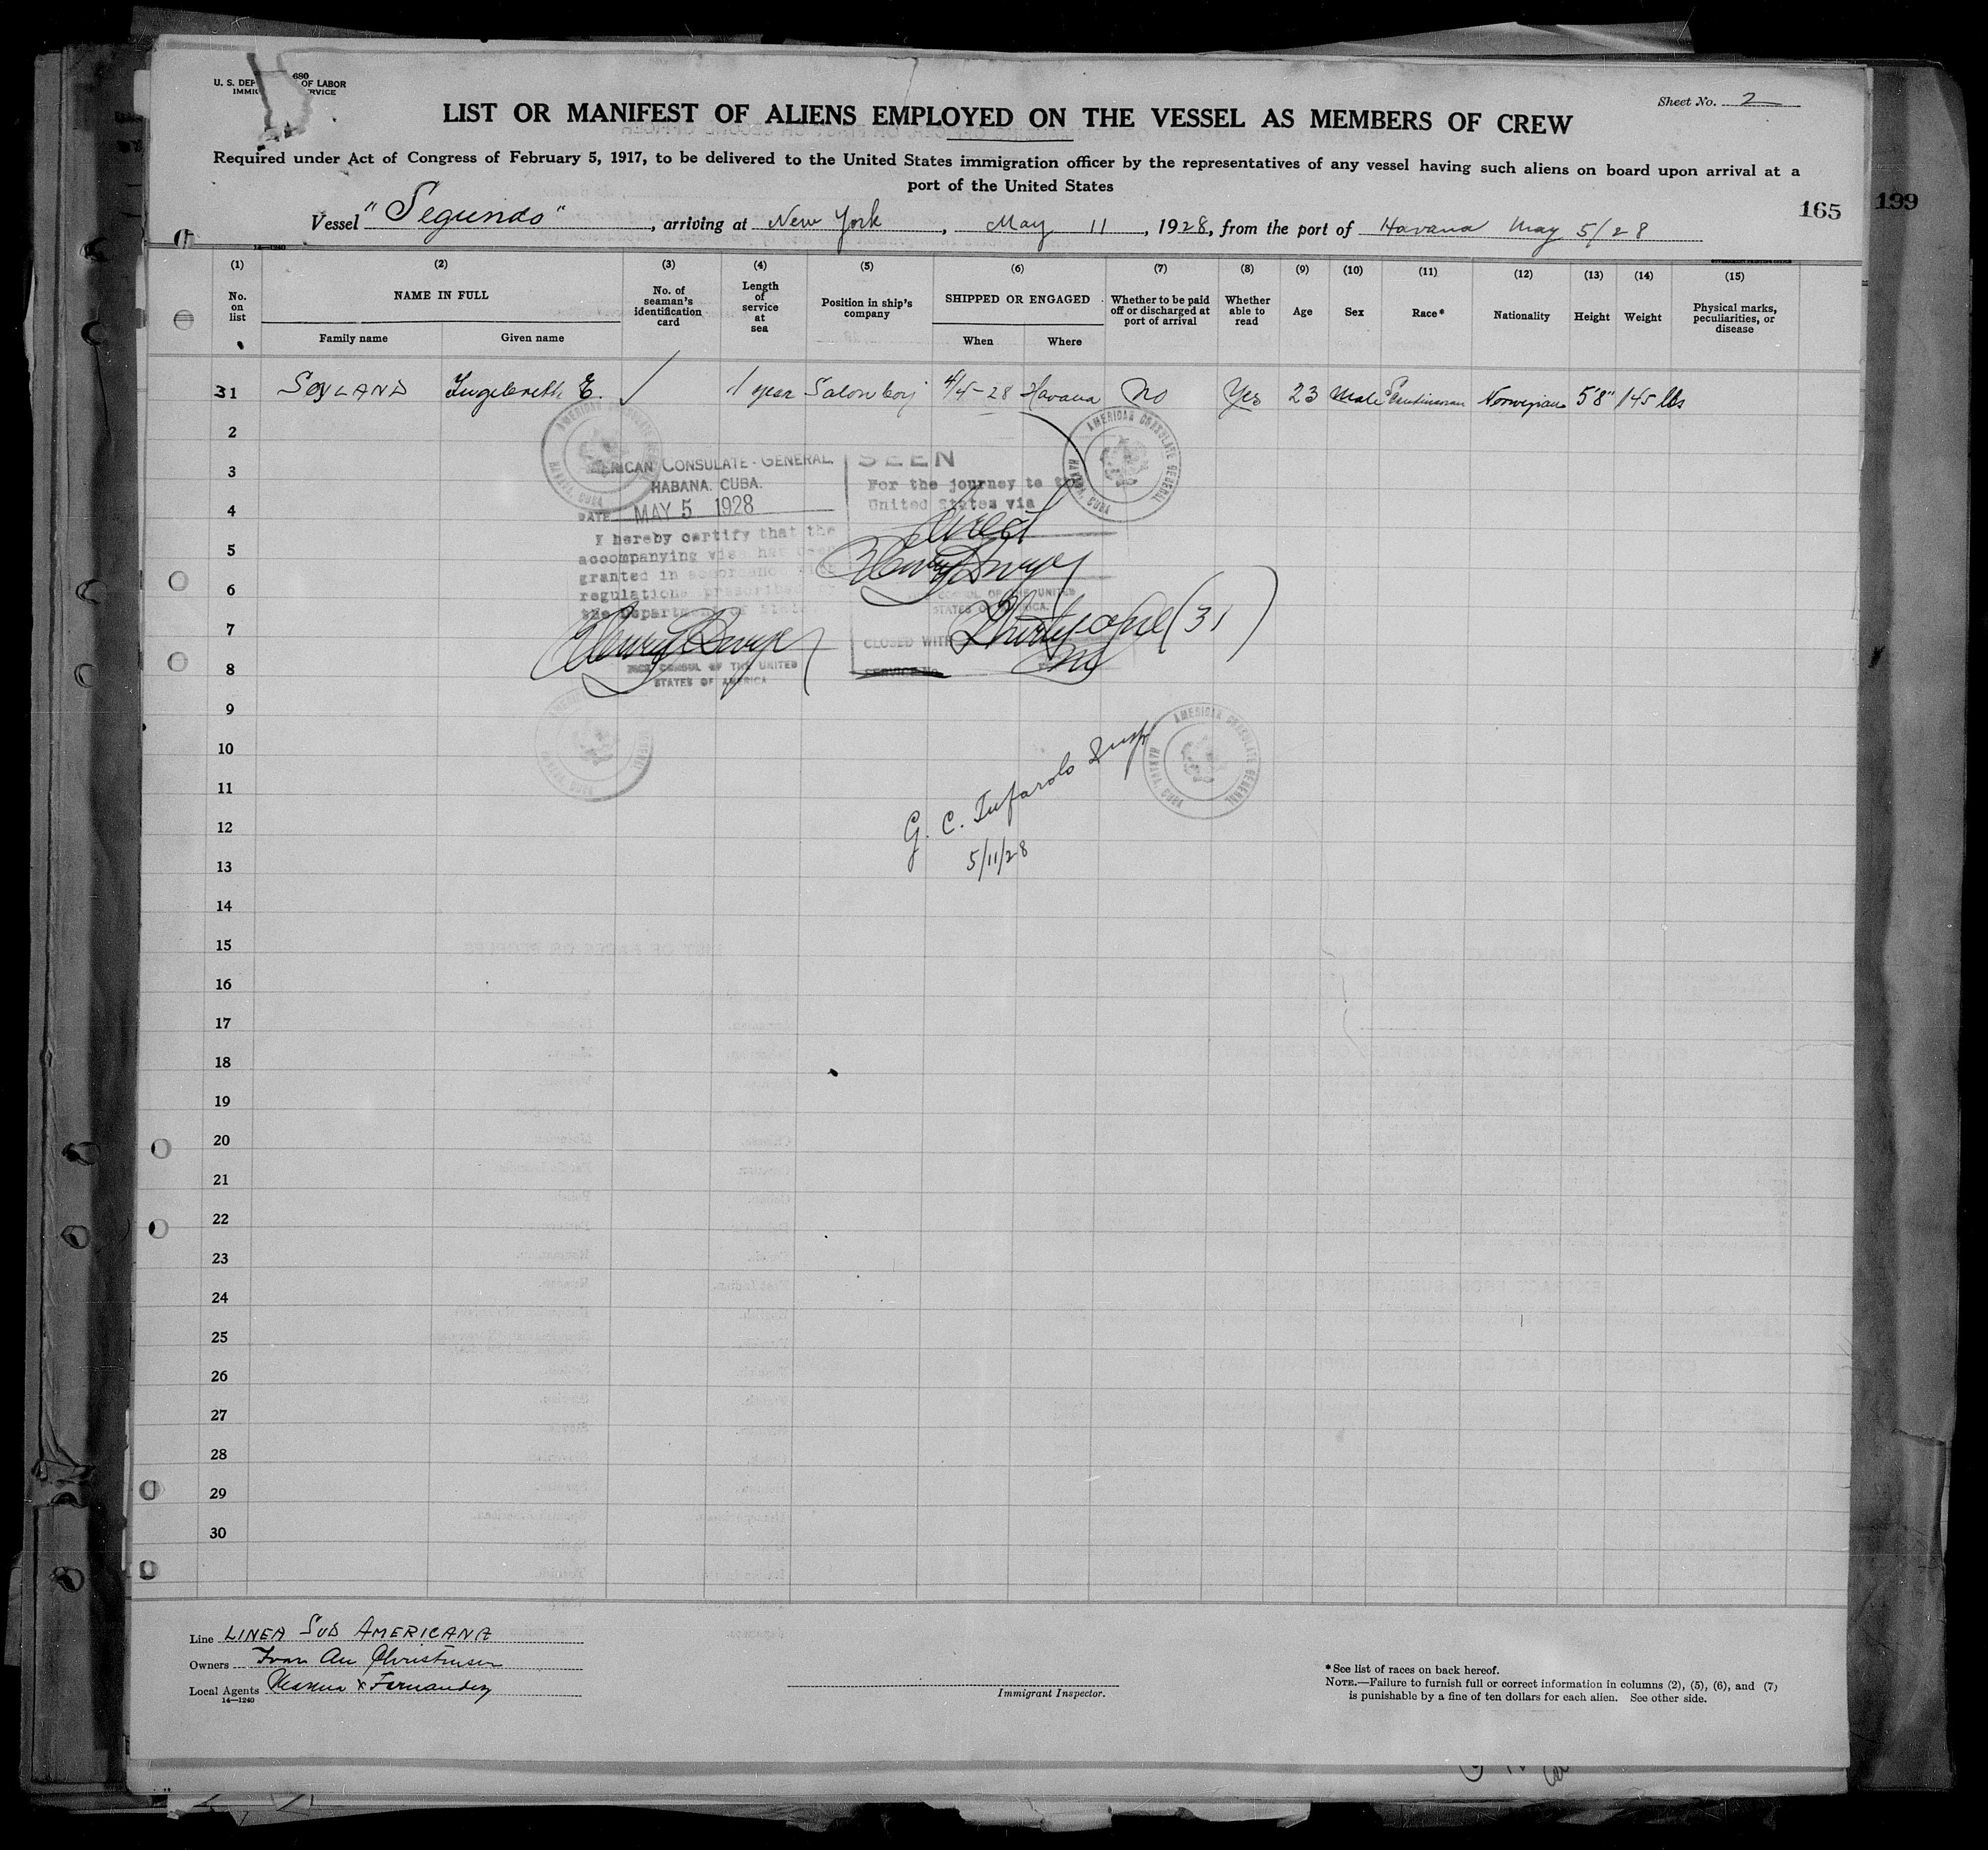 680
U. S. DEP OF LABOR
IMMIG RVICE
Sheet No. 2
LIST OR MANIFEST OF ALIENS EMPLOYED ON THE VESSEL AS MEMBERS OF CREW
Required under Act of Congress of February 5, 1917, to be delivered to the United States immigration officer by the representatives of any vessel having such aliens on board upon arrival at a
port of the United States
165 199
Vessel "Segundo", arriving at New York, May 11, 1928, from the port of Havana May 5/28
14—1240
(1) (2) (3) (4) (5) (6) (7) (8) (9) (10) (11) (12) (13) (14) (15)
No. on list
NAME IN FULL
Family name
Given name
No. of seaman's identification card
Length of service at sea
Position in ship's company
SHIPPED OR ENGAGED
When
Where
Whether to be paid off or discharged at port of arrival
Whether able to read
Age
Sex
Race*
Nationality
Height
Weight
Physical marks, peculiarities, or disease
31 SOYLAND Ingebreth E. ✓ 1 year Salon boy 4/5-28 Havana No Yes 23 Male Scandinavian Norwegian 5'8" 145 lbs
2
3
4
5
6
7
8
9
10
11
12
13
14
15
16
17
18
19
20
21
22
23
24
25
26
27
28
29
30
AMERICAN CONSULATE GENERAL
HAVANA, CUBA
AMERICAN CONSULATE GENERAL
HAVANA, CUBA
AMERICAN CONSULATE-GENERAL
HABANA. CUBA.
DATE MAY 5 1928
I hereby certify that the
accompanying visa has been
granted in accordance with
regulations prescribed by
the Department of State.
VICE CONSUL OF THE UNITED
STATES OF AMERICA
SEEN
For the journey to the
United States via
direct
CONSUL OF THE UNITED
STATES OF AMERICA.
CLOSED WITH Thirty-one (31)
SERVICE No.
AMERICAN CONSULATE GENERAL
HAVANA, CUBA
G. C. Tufarolo Insp
5/11/28
Line LINEA SUD AMERICANA
Owners Ivar An Christensen
Local Agents & Fernandez
14—1240
Immigrant Inspector.
*See list of races on back hereof.
NOTE.—Failure to furnish full or correct information in columns (2), (5), (6), and (7)
is punishable by a fine of ten dollars for each alien. See other side.